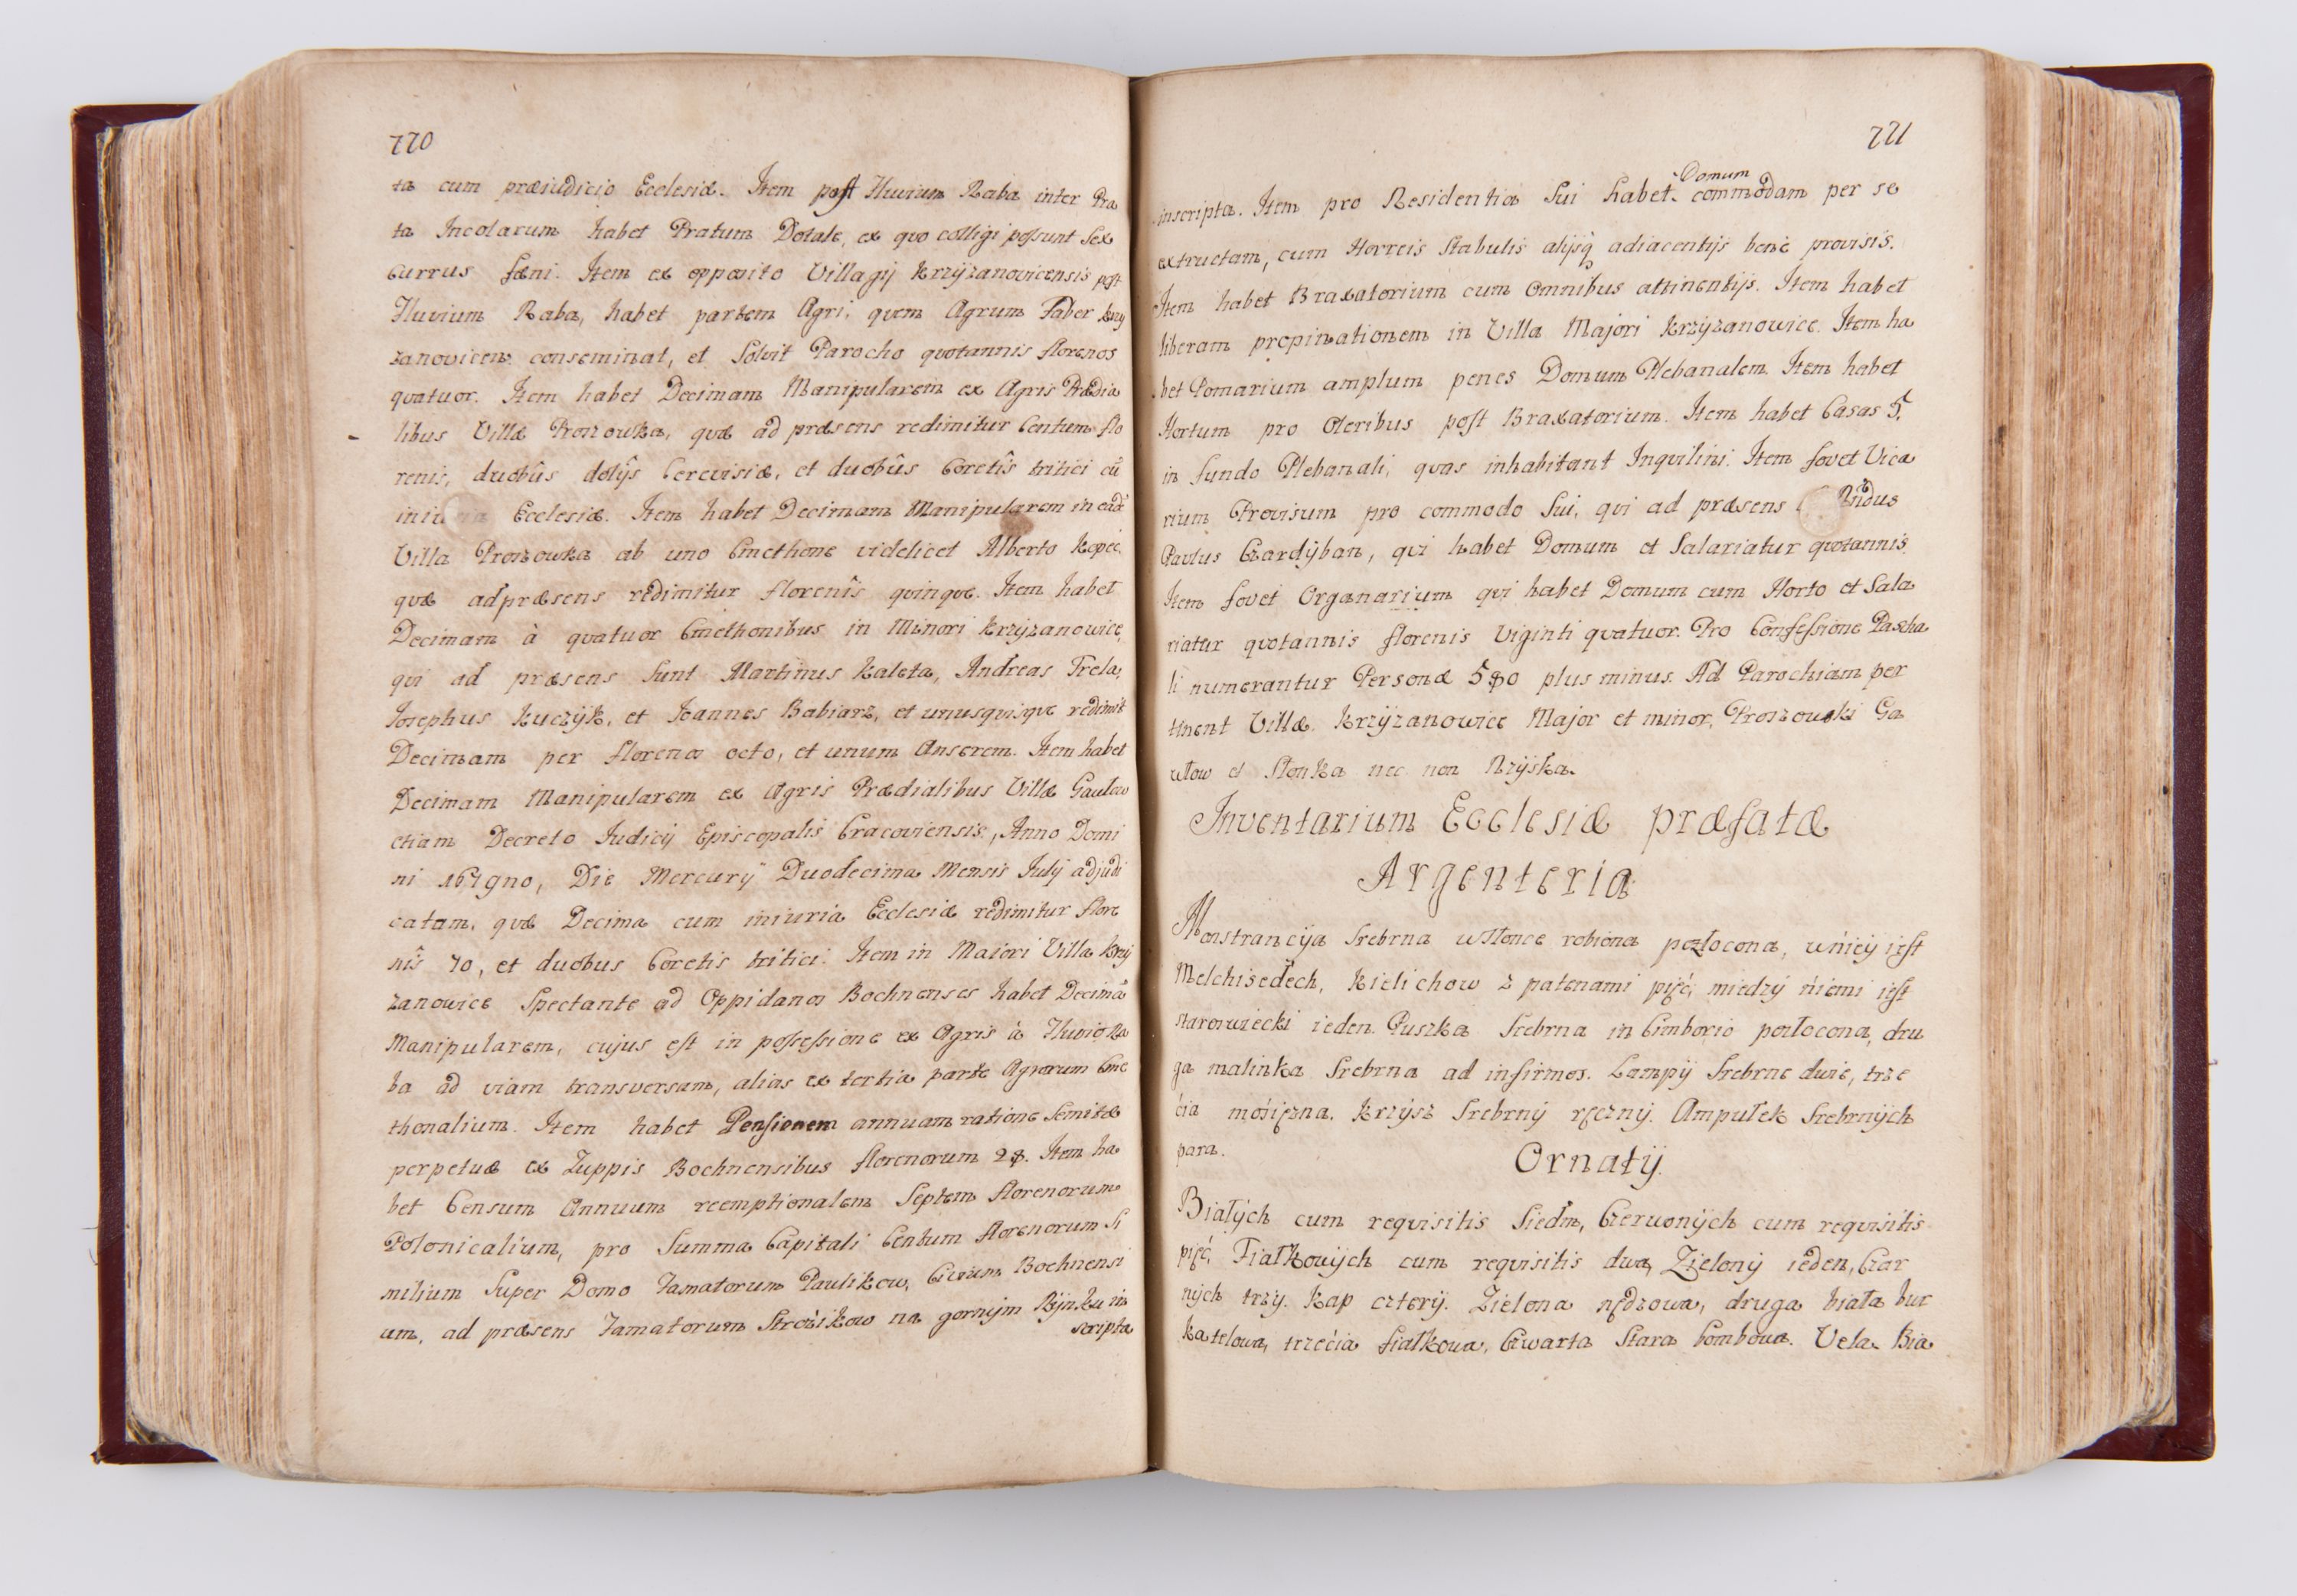 770
ta cum præiudicio Ecclesiæ. Item post Fluvium Raba inter Pra
ta Incolarum habet Pratum Dotale, ex quo colligi possunt Sex
currus fæni. Item ex opposito Villagij Krzyżanovicensis post
Fluvium Raba, habet partem Agri, quem Agrum Faber Krzy
zanovicen: conseminat, et Solvit Parocho quotannis florenos
quatuor. Item habet Decimam Manipularem ex Agris Prædia
libus Villæ Proszowka, quæ ad præsens redimitur Centum flo
renis, duobûs dolijs Cerevisiæ, et duobûs Coretîs tritici cū
Ecclesiæ. Item habet Decimam Manipularem in eadē
Villa Proszowka ab uno Cmethone videlicet Alberto Kopeć.
quæ ad præsens redimitur florenîs quinque. Item habet
Decimam à quatuor Cmethonibus in Minori Krzyżanowice,
qui ad præsens Sunt Martinus Kaleta, Andreas Trela,
Josephus Kuczÿk, et Joannes Babiarz, et unusquisque redimit
Decimam per florenos octo, et unum Anserem. Item habet
Decimam Manipularem ex Agris Prædialibus Villæ Gawłow
etiam Decreto Judicij Episcopalis Cracoviensis, Anno Domi
ni Die Mercurÿ Duodecima Mensis Julÿ adjudi
catam, quæ Decima cum iniuria Ecclesiæ redimitur flore
nîs 70, et duobus Coretis tritici. Item in Maiori Villa Krzy
zanowice Spectante ad Oppidanos Bochnenses habet Decimā
Manipularem, cujus est in possessione ex Agris à Fluvio Ra
ba ad viam transversam, alias ex tertia parte Agrorum Cme
thonalium. Item habet Pensionem annuam ratione Semitæ
perpetuæ ex Zuppis Bochnensibus florenorum 28. Item ha
bet Censum Annuum reemptionalem Septem florenorum
Polonicalium, pro Summa Capitali Centum florenorum Si
milium Super Domo Famatorum Paulikow, Civium Bochnensi
um, ad præsens Famatorum Strożikow na gornÿm Rÿnku in
scripta
771
inscripta. Item pro Residentia Sui habet Domum commodam per se
extructam, cum Horreis Stabulis alijsq adiacentijs benè provisis.
Item habet Braxatorium cum Omnibus attinentijs. Item habet
liberam propinationem in Villa Majori Krzyżanowice. Item ha
bet Pomarium amplum penes Domum Plebanalem Item habet
Hortum pro Oleribus post Braxatorium. Item habet Casas 5.
in fundo Plebanali, quas inhabitant Inquilini. Item fovet Vica
rium Provisum pro commodo Sui, qui ad præsens Rñdus
Paulus Czardÿban, qui habet Domum et Salariatur quotannis
Item fovet Organarium qui habet Domum cum Horto et Sala
riatur quotannis florenis Viginti quatuor. Pro Confessione Pascha
li numerantur Personæ 580 plus minus. Ad Parochiam per
tinent Villæ Krzÿżanowice Major et minor, Proszowski Ga
włow et Słonka nec non Rzÿska.
Inventarium Ecclesiæ præfatæ
Argenteria
Monstrancÿa Srebrna wsłonce robiona pozłocona, wnieÿ iest
Melchisedech, Kielichow z patenami pięć, miedzÿ niemi iest
staroswiecki ieden. Puszka Srebrna in Cimborio pozłocona, dru
ga malinka Srebrna ad infirmos. Lampÿ Srebrne dwie, trze
cia mosiężna. Krzÿsz Srebrnÿ ręcznÿ. Ampułek Srebrnÿch
para.
Ornatÿ.
Białÿch cum requisitis Siedm, Czerwonÿch cum requisitis
pięć, Fiałkowÿch cum requisitis dwa, Zielonÿ ieden, Czar
nÿch trzÿ. Kap czterÿ. Zielona druga biała bur
katelowa, trzecia fiałkowa, Czwarta Stara Vela Bia